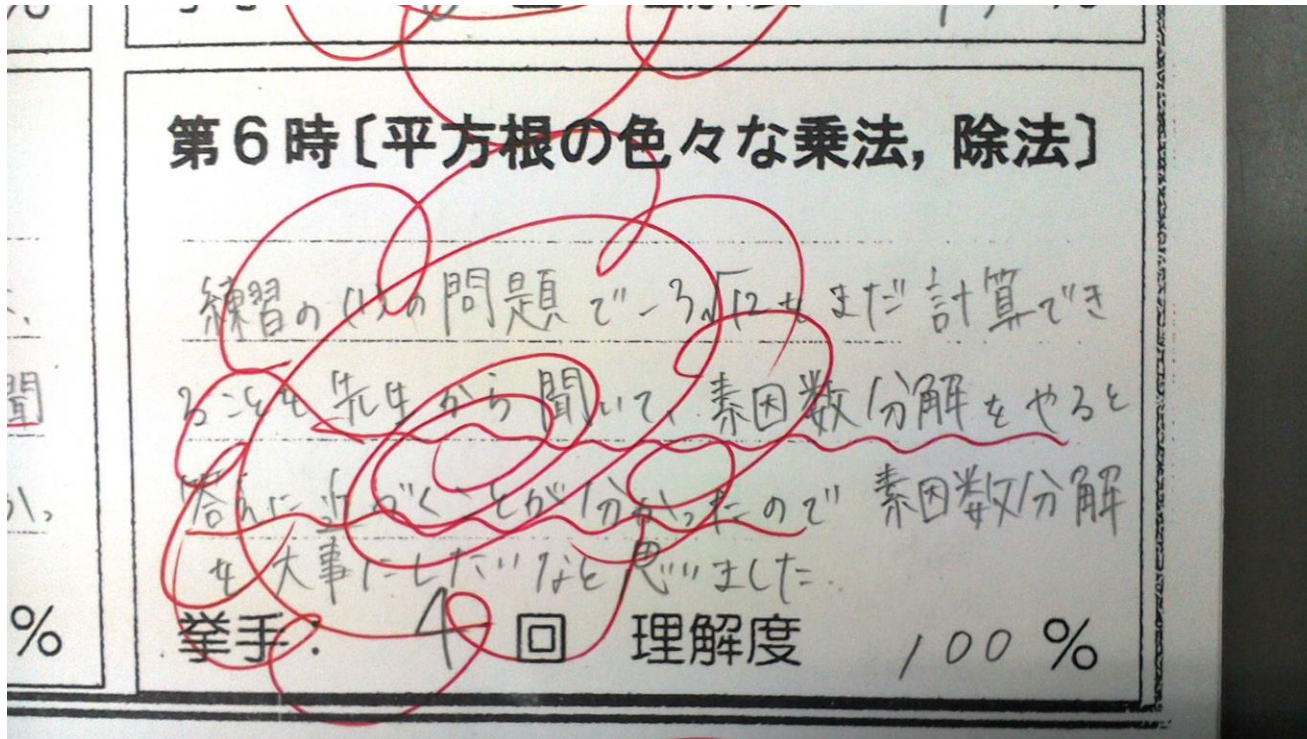 第6時〔平方根の色々な乗法, 除法〕
練習の(1)の問題で-3√12もまだ計算でき
ることを先生から聞いて、素因数分解をやると
答えに近づくことが分かったので素因数分解
を大事にしたいなと思いました.
挙手: 4回 理解度 100%
聞
%